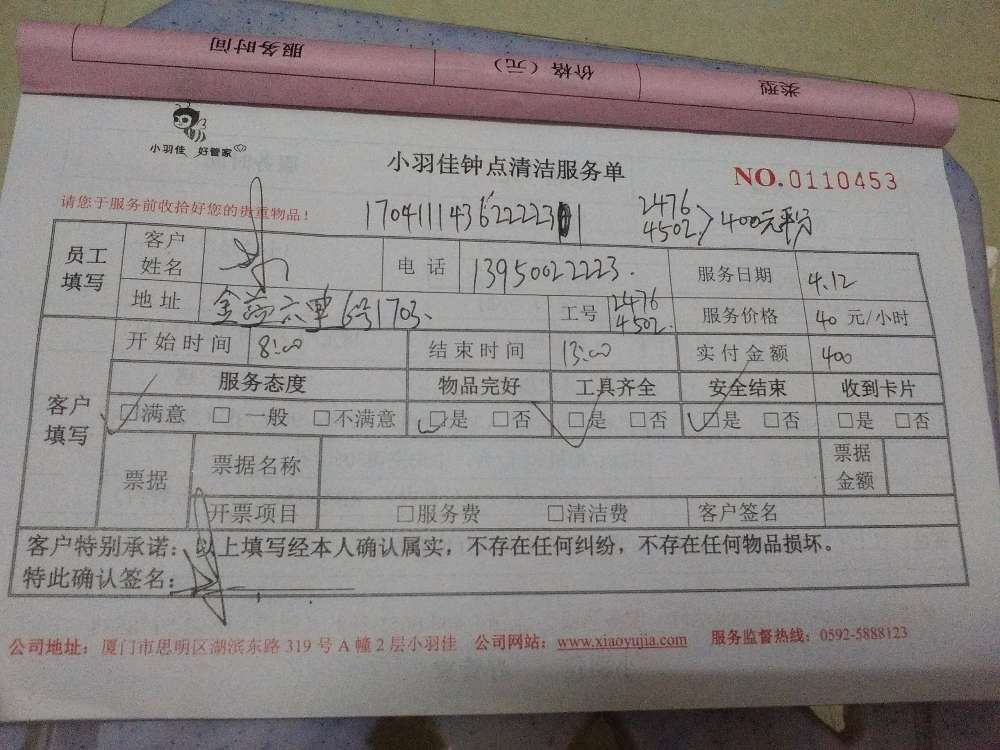 服务时间 价格（元） 类型
小羽佳 好管家
小羽佳钟点清洁服务单
NO.0110453
请您于服务前收拾好您的贵重物品！
2476
4502 > 400元平分
员工填写 客户姓名 电话 13950022223. 服务日期 4.12
地址 六里6号1703. 工号 2476 4502. 服务价格 40 元/小时
客户填写 开始时间 8:00 结束时间 13:00 实付金额 400
服务态度 物品完好 工具齐全 安全结束 收到卡片
□满意 □一般 □不满意 □是 □否 □是 □否 □是 □否 □是 □否
票据 票据名称 票据金额
开票项目 □服务费 □清洁费 客户签名
客户特别承诺：以上填写经本人确认属实，不存在任何纠纷，不存在任何物品损坏。
特此确认签名：
公司地址：厦门市思明区湖滨东路 319 号 A 幢 2 层小羽佳 公司网站：www.xiaoyujia.com 服务监督热线：0592-5888123